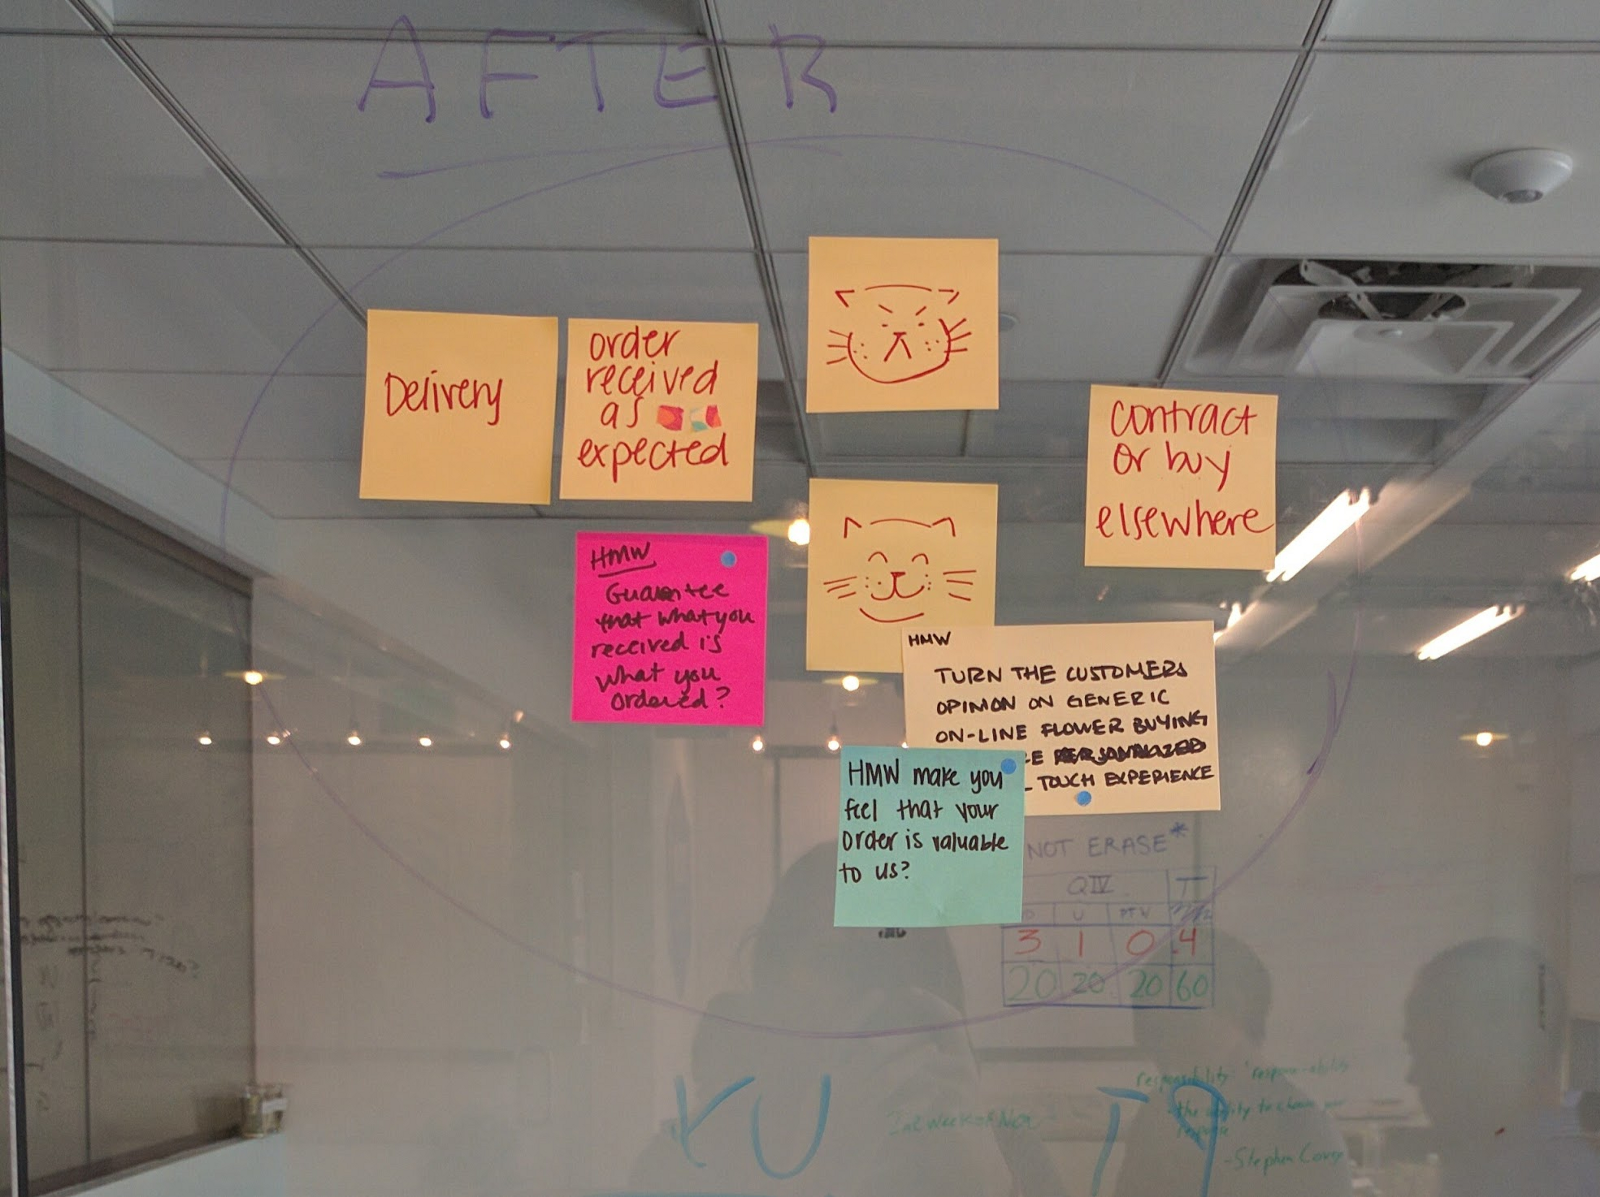 AFTER
Delivery
order
received
as
expected
contract
or buy
elsewhere
HMW
Guarantee
that what you
received is
what you
ordered?
HMW
TURN THE CUSTOMERS
OPINION ON GENERIC
ON-LINE FLOWER BUYING
TOUCH EXPERIENCE
HMW make you
feel that your
order is valuable
to us?
NOT ERASE*
QIV T
U PTW
3 1 0 4
20 20 20 60
responsibility
- the ability to choose your
response
- Stephen Covey